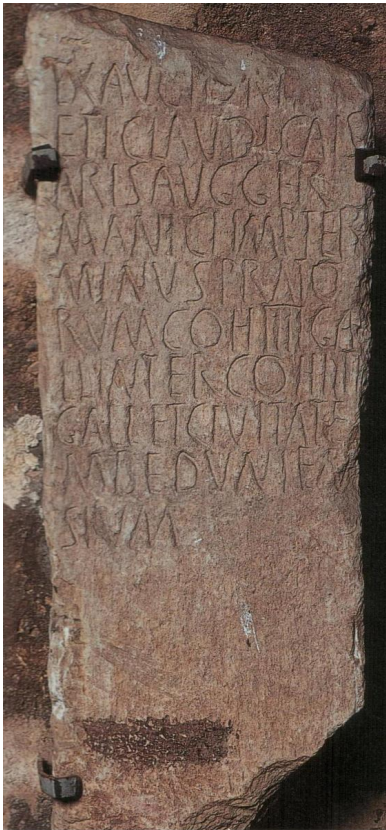 EX
E TI CLAVDI CAES
ARIS AVG GER
MANICI IMP TER
MINVS PRATO
RVM COH IIII GA
LL INTER COH IIII
GALL ET CIVITATE
M BEDVNIEN
SIVM